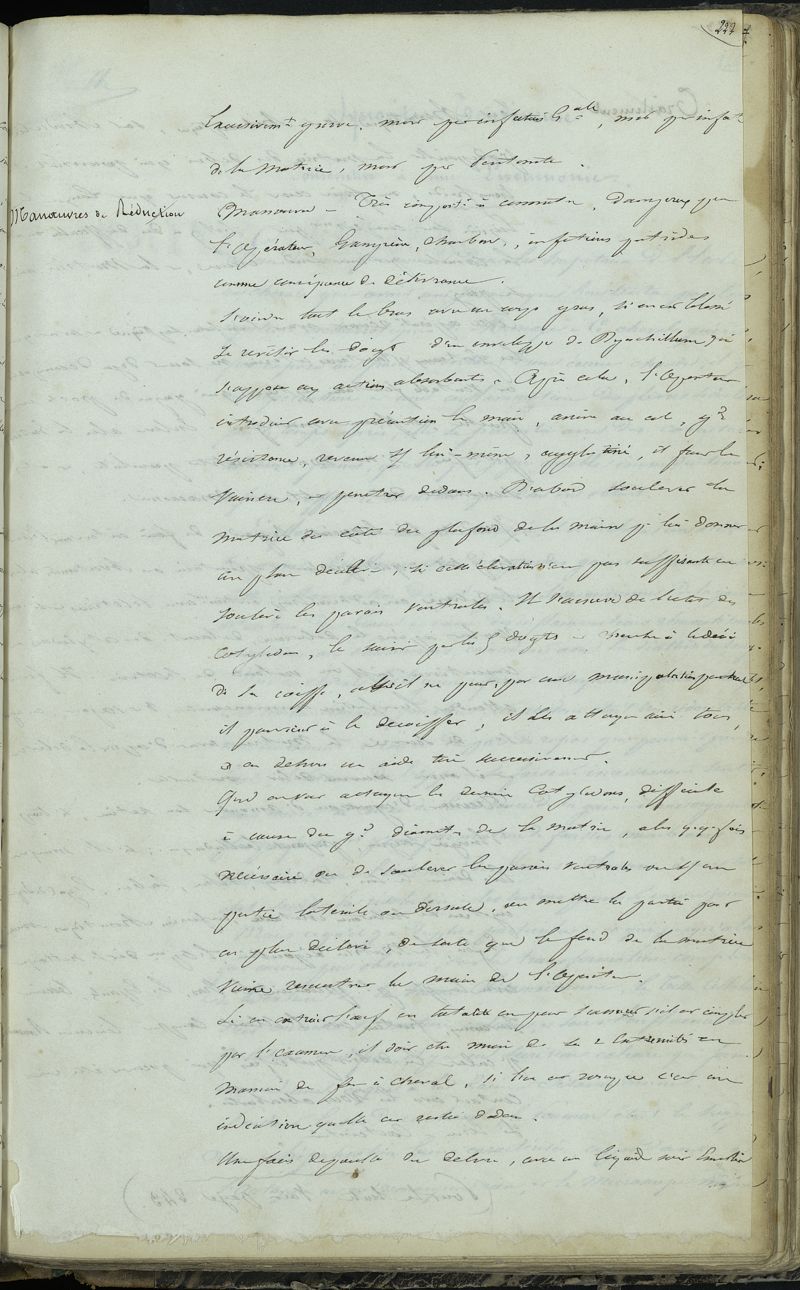 237
Excessivemt grave. mort par infection Gale, mort par infect
de la Matrice, mort par Péritonite.
Manœuvres de Réduction
Manœuvre — Très à connaitre, dangereux pour
l'opérateur, Gangrène, charbon, infections putrides
comme conséquence de Délivrance.
tout le bras avec un corps gras, si on est blessé
se revêtir les doigts d'une enveloppe de qui
s'oppose aux actions absorbantes. Après cela, l'opérateur
introduit avec précaution la main, arrive au col, qq
résistance, revenu sur lui-même, il faut la
vaincre, et pénétrer dedans. D'abord soulever la
matrice du côté du plafond de la main pr lui donner
un plan déclive, si cette élévation n'est pas suffisante on
soulève les parois ventrales. Il s'assure de l'état des
cotylédons, le saisir par les 5 doigts et cherche à
de sa coiffe, par une manipulation
il parvient à le décoiffer, il les attaque ainsi tous,
et en dehors un aide tire successivement.
Qd on va attaquer les derniers Cotylédons, difficile
à cause du gd diamètre de la matrice, alors qqfois
nécessaire ou de soulever les parois ventrales ou sur une
partie latérale ou dorsale, ou mettre la partie
en plan déclive, de sorte que le fond de la matrice
vienne rencontrer la main de l'opérateur.
Si on extrait l'œuf en totalité on peut s'assurer s'il est complet
par l'examen, il doit être muni de ses 2 extrémités en
manière de fer à cheval, si l'une est rompue c'est une
indication qu'elle est restée dedans.
Une fois du Delivre, avec un liquide